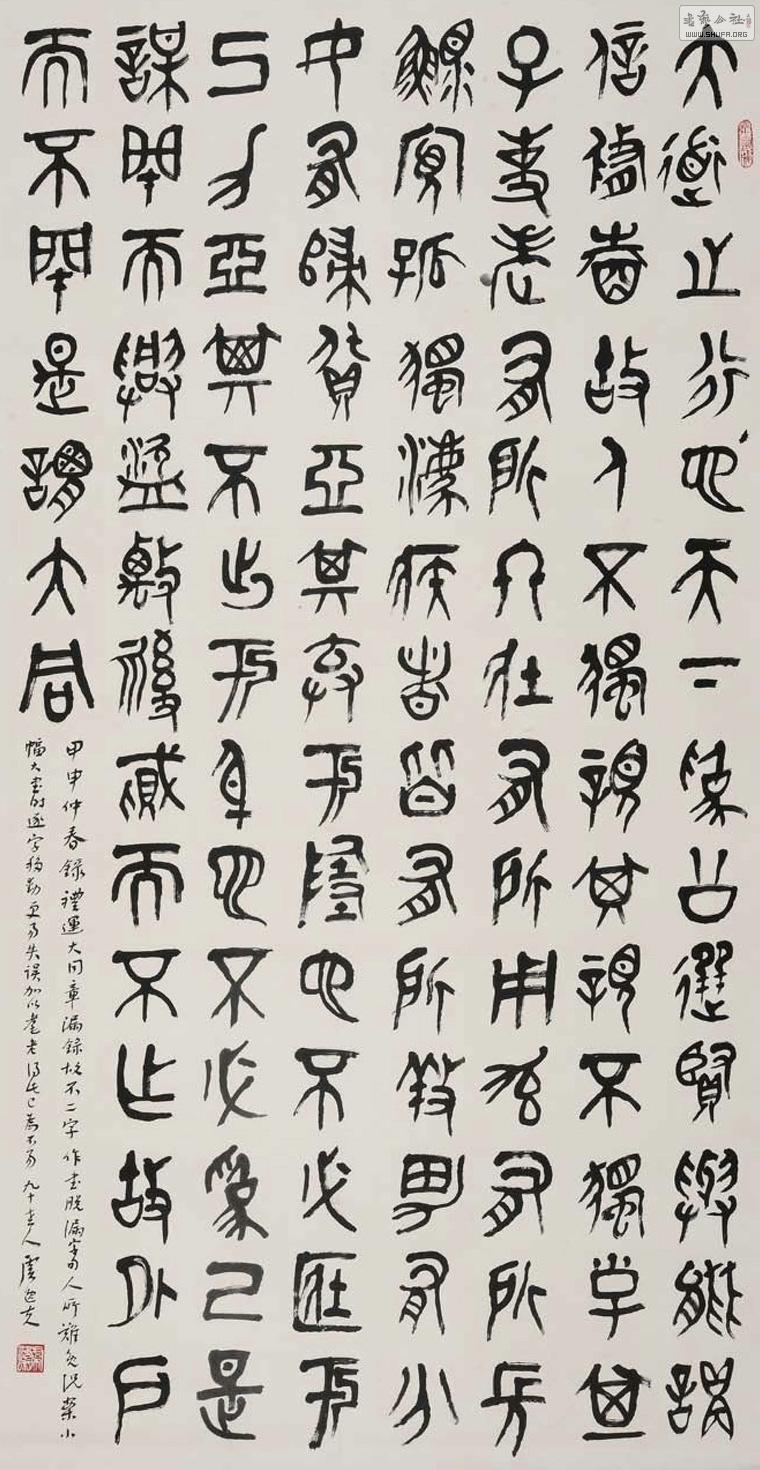 大道之行也天下為公選賢與能講
信脩睦故人不獨親其親不獨子其
子使老有所終壯有所用幼有所長
鰥寡孤獨廢疾者皆有所養男有分
女有歸貨惡其棄於地也不必藏於
己力惡其不出於身也不必為己是
謀閉而興盜竊亂賊而不作故外戶
而不閉是謂大同
甲申仲春錄禮運大同章漏錄故不二字作書脫漏人所難免況案小
幅大書時逐字移動更易失誤加以耄老得此已為不易九十老人虞逸夫
书法公社
WWW.SHUFA.ORG